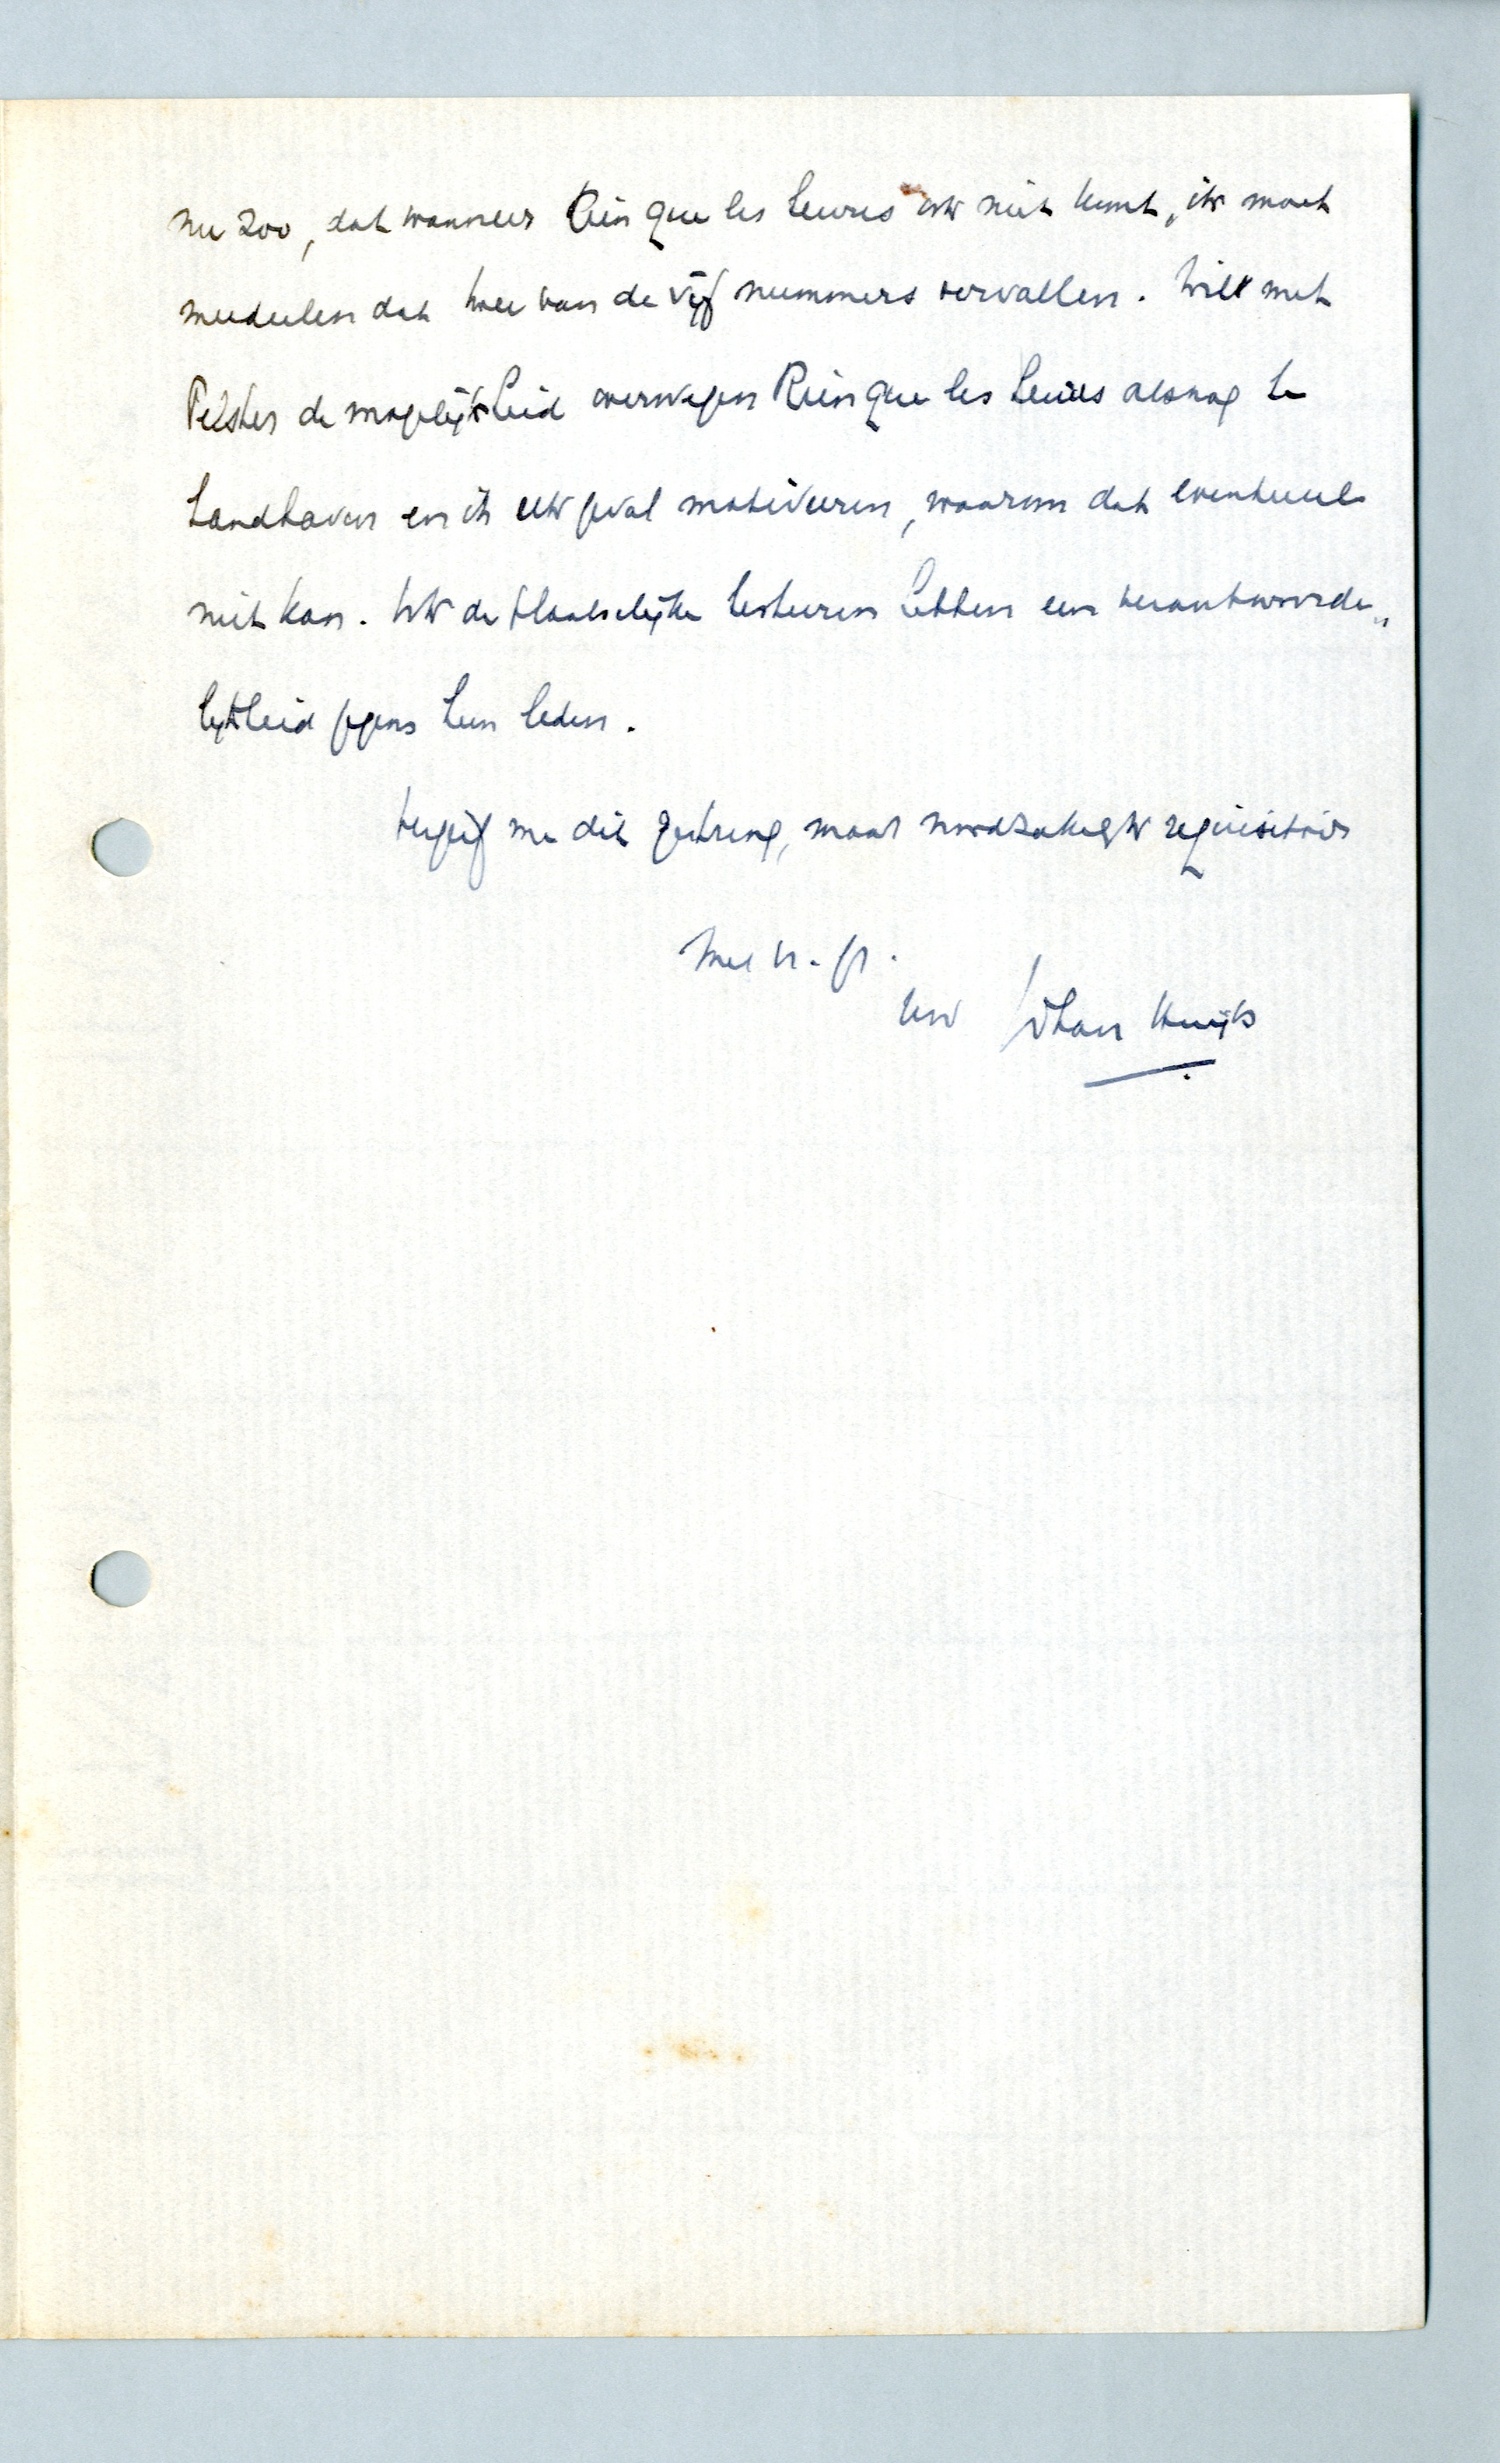 nu zoo, dat wanneer Rien que les heures ook niet komt, ik moet
meedeelen dat twee van de vijf nummers vervallen. Wilt met
Pelster de mogelijkheid overwegen Rien que les heures alsnog te
handhaven en in elk geval motiveeren, waarom dat eventueel
niet kan. Ook de plaatselijke besturen hebben een verantwoorde„
lijkheid jegens hun leden.
Vergeef me dit gestreng, maar noodzakelijk requisitoir
Met vr. gr.
Uw Johan Huijts